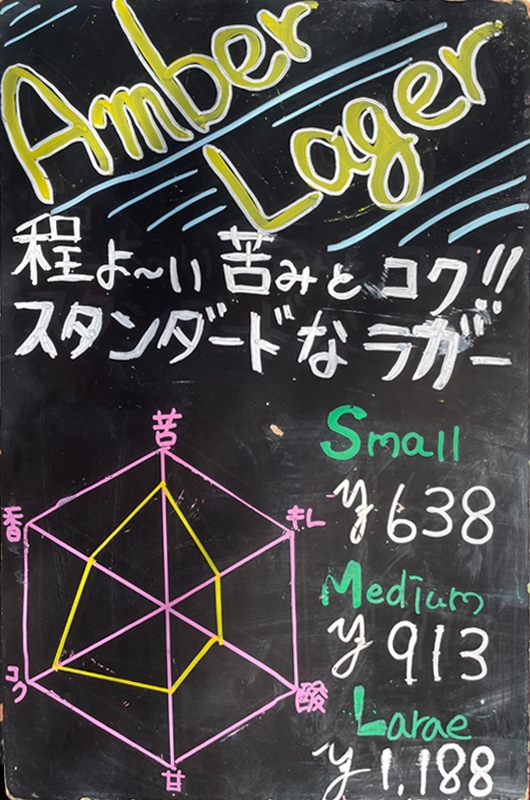 Amber
Lager
程よ〜い 苦みと コク!!
スタンダードな ラガー
苦
香
キレ
コク
酸
甘
Small
¥638
Medium
¥913
Larae
¥1,188